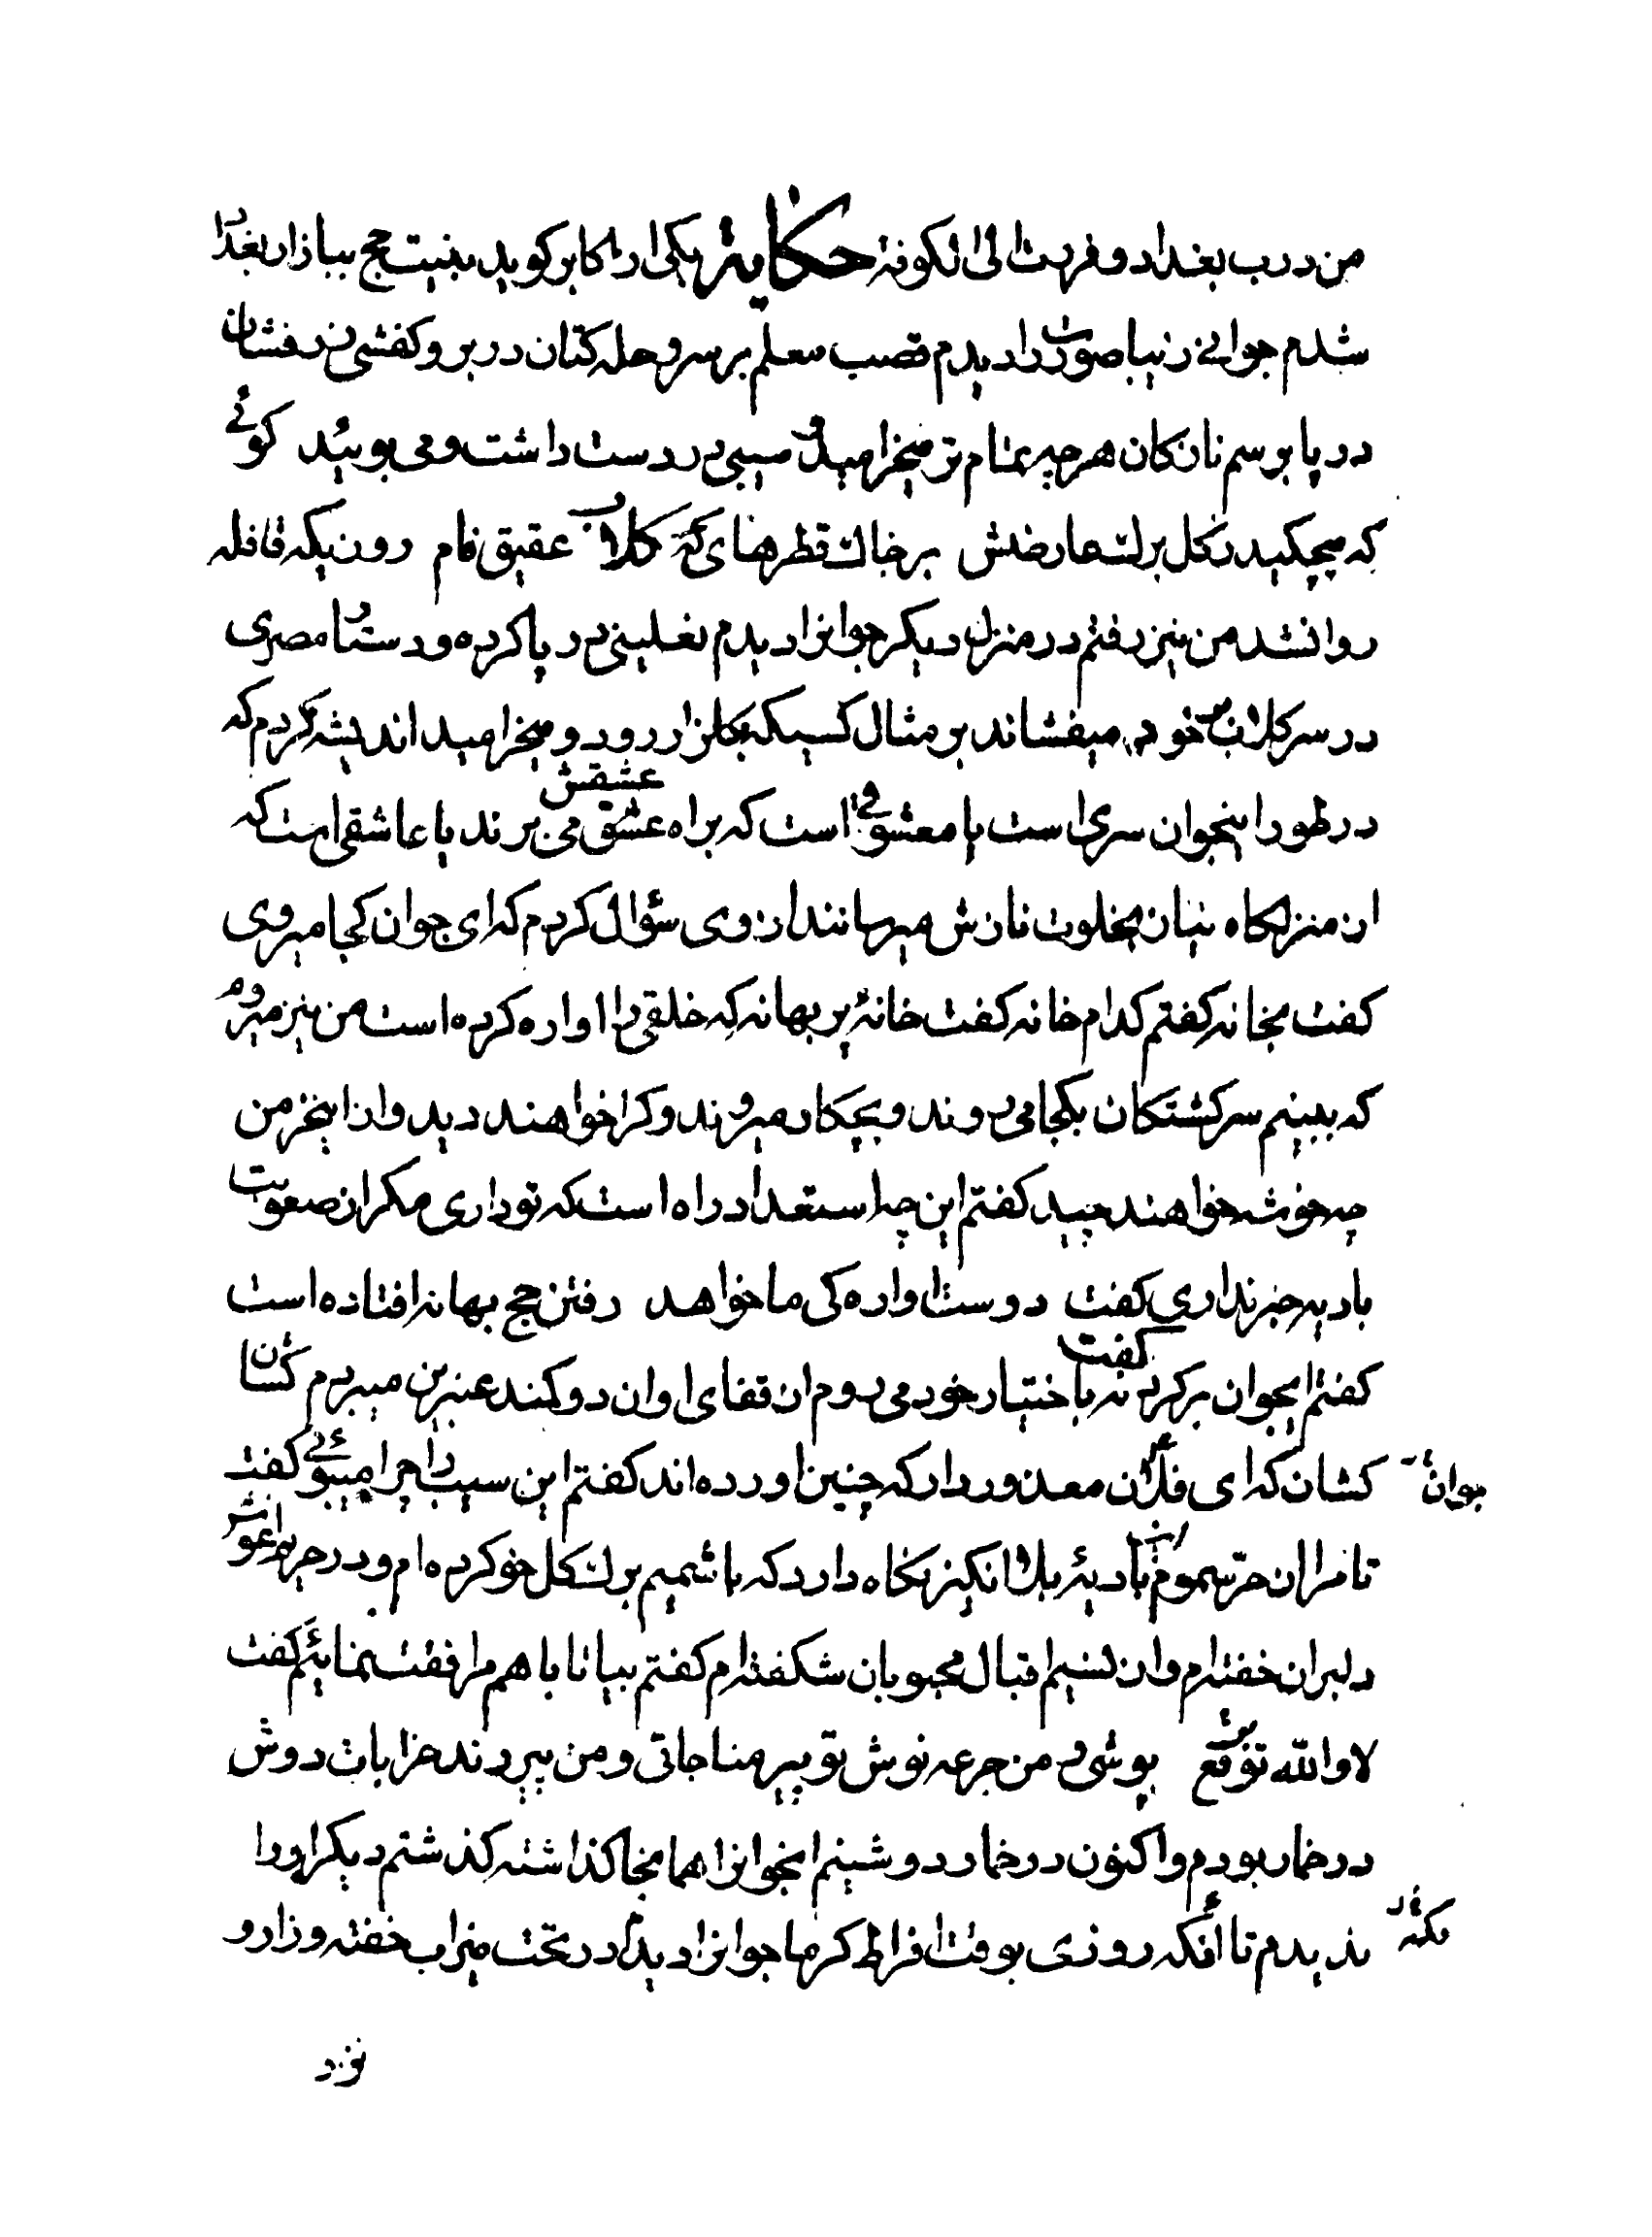 من درب بغداد و فریت الی الکوفة حکایة یکی از اکابر کوید بنیت حج ببازار بغداد
شدم جوانی زیبا صورت را دیدم قصب معلم بر سر و حله کتان در بر و کفشی زرفشان
در پا برسم نازکان هرچه تمام تر میخرامید و سیبی در دست داشت و می بوئید کوئی
که میچکید ز کل برک عارضش بر خاک قطرهای کلاب عقیق فام روزیکه قافله
روانشد من نیز رفتم در منزل دیکر جوانرا دیدم نعلینی در پا کرده و دستار مصری
در سر کلاب بر خود میفشاند بر مثال کسیکه بکلزار رود و میخرامید اندیشه کردم که
در طور اینجوان سری است یا معشوقی است که براه عشقش می برند یا عاشقی است که
از منزلکاه نیاز بخلوت نازش میرسانند از وی سؤال کردم که ای جوان کجا میروی
کفت بخانه کفتم کدام خانه کفت خانهٔ پر بهانه که خلقی را اواره کرده است من نیز میروم
که ببینم سرکشتکان بکجا می روند و بچکار میروند و کرا خواهند دید و از اینخرمن
چه خوشه خواهند چید کفتم این چه استعداد راه است که تو داری مکر از صعوبت
بادیه خبر نداری کفت دوست اواره کی ما خواهد رفتن حج بهانه افتاده است
کفتم ایجوان برکرد کفت نه باختیار خود می روم از قفای او ان دو کمند عنبرین میبردم کشان
کشان که ای فلان معذور دار که چنین اورده اند کفتم این سیب را چرا میبوئی کفت
تا مرا از حر سموم این بادیهٔ بلا انکیز نکاه دارد که با شمیم برک کل خو کرده ام و در حریم اغوش
دلبران خفته ام و از نسیم اقبال محبوبان شکفته ام کفتم بیا تا با هم مرافقت نمائیم کفت
لا والله تو مرقع پوشی و من جرعه نوش تو پیر مناجاتی و من پیر رند خرابات دوش
در خمار بودم و اکنون در خمار دوشینم انجوانرا همانجا کذاشته کذشتم دیکر اورا
ندیدم تا آنکه روزی بوقت افراط کرما جوانرا دیدم در تحت میزاب خفته و زار و
نزد